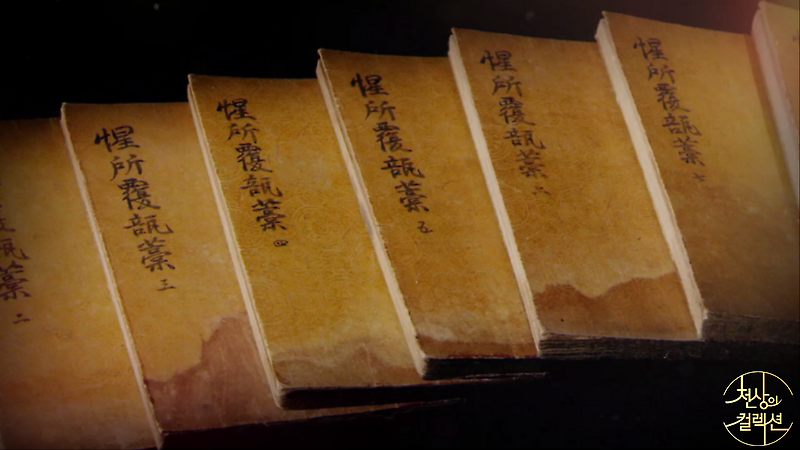 瓿藁 二
惺所覆瓿藁 三
惺所覆瓿藁 四
惺所覆瓿藁 五
惺所覆瓿藁 六
惺所覆瓿藁 七
천상의
컬렉션